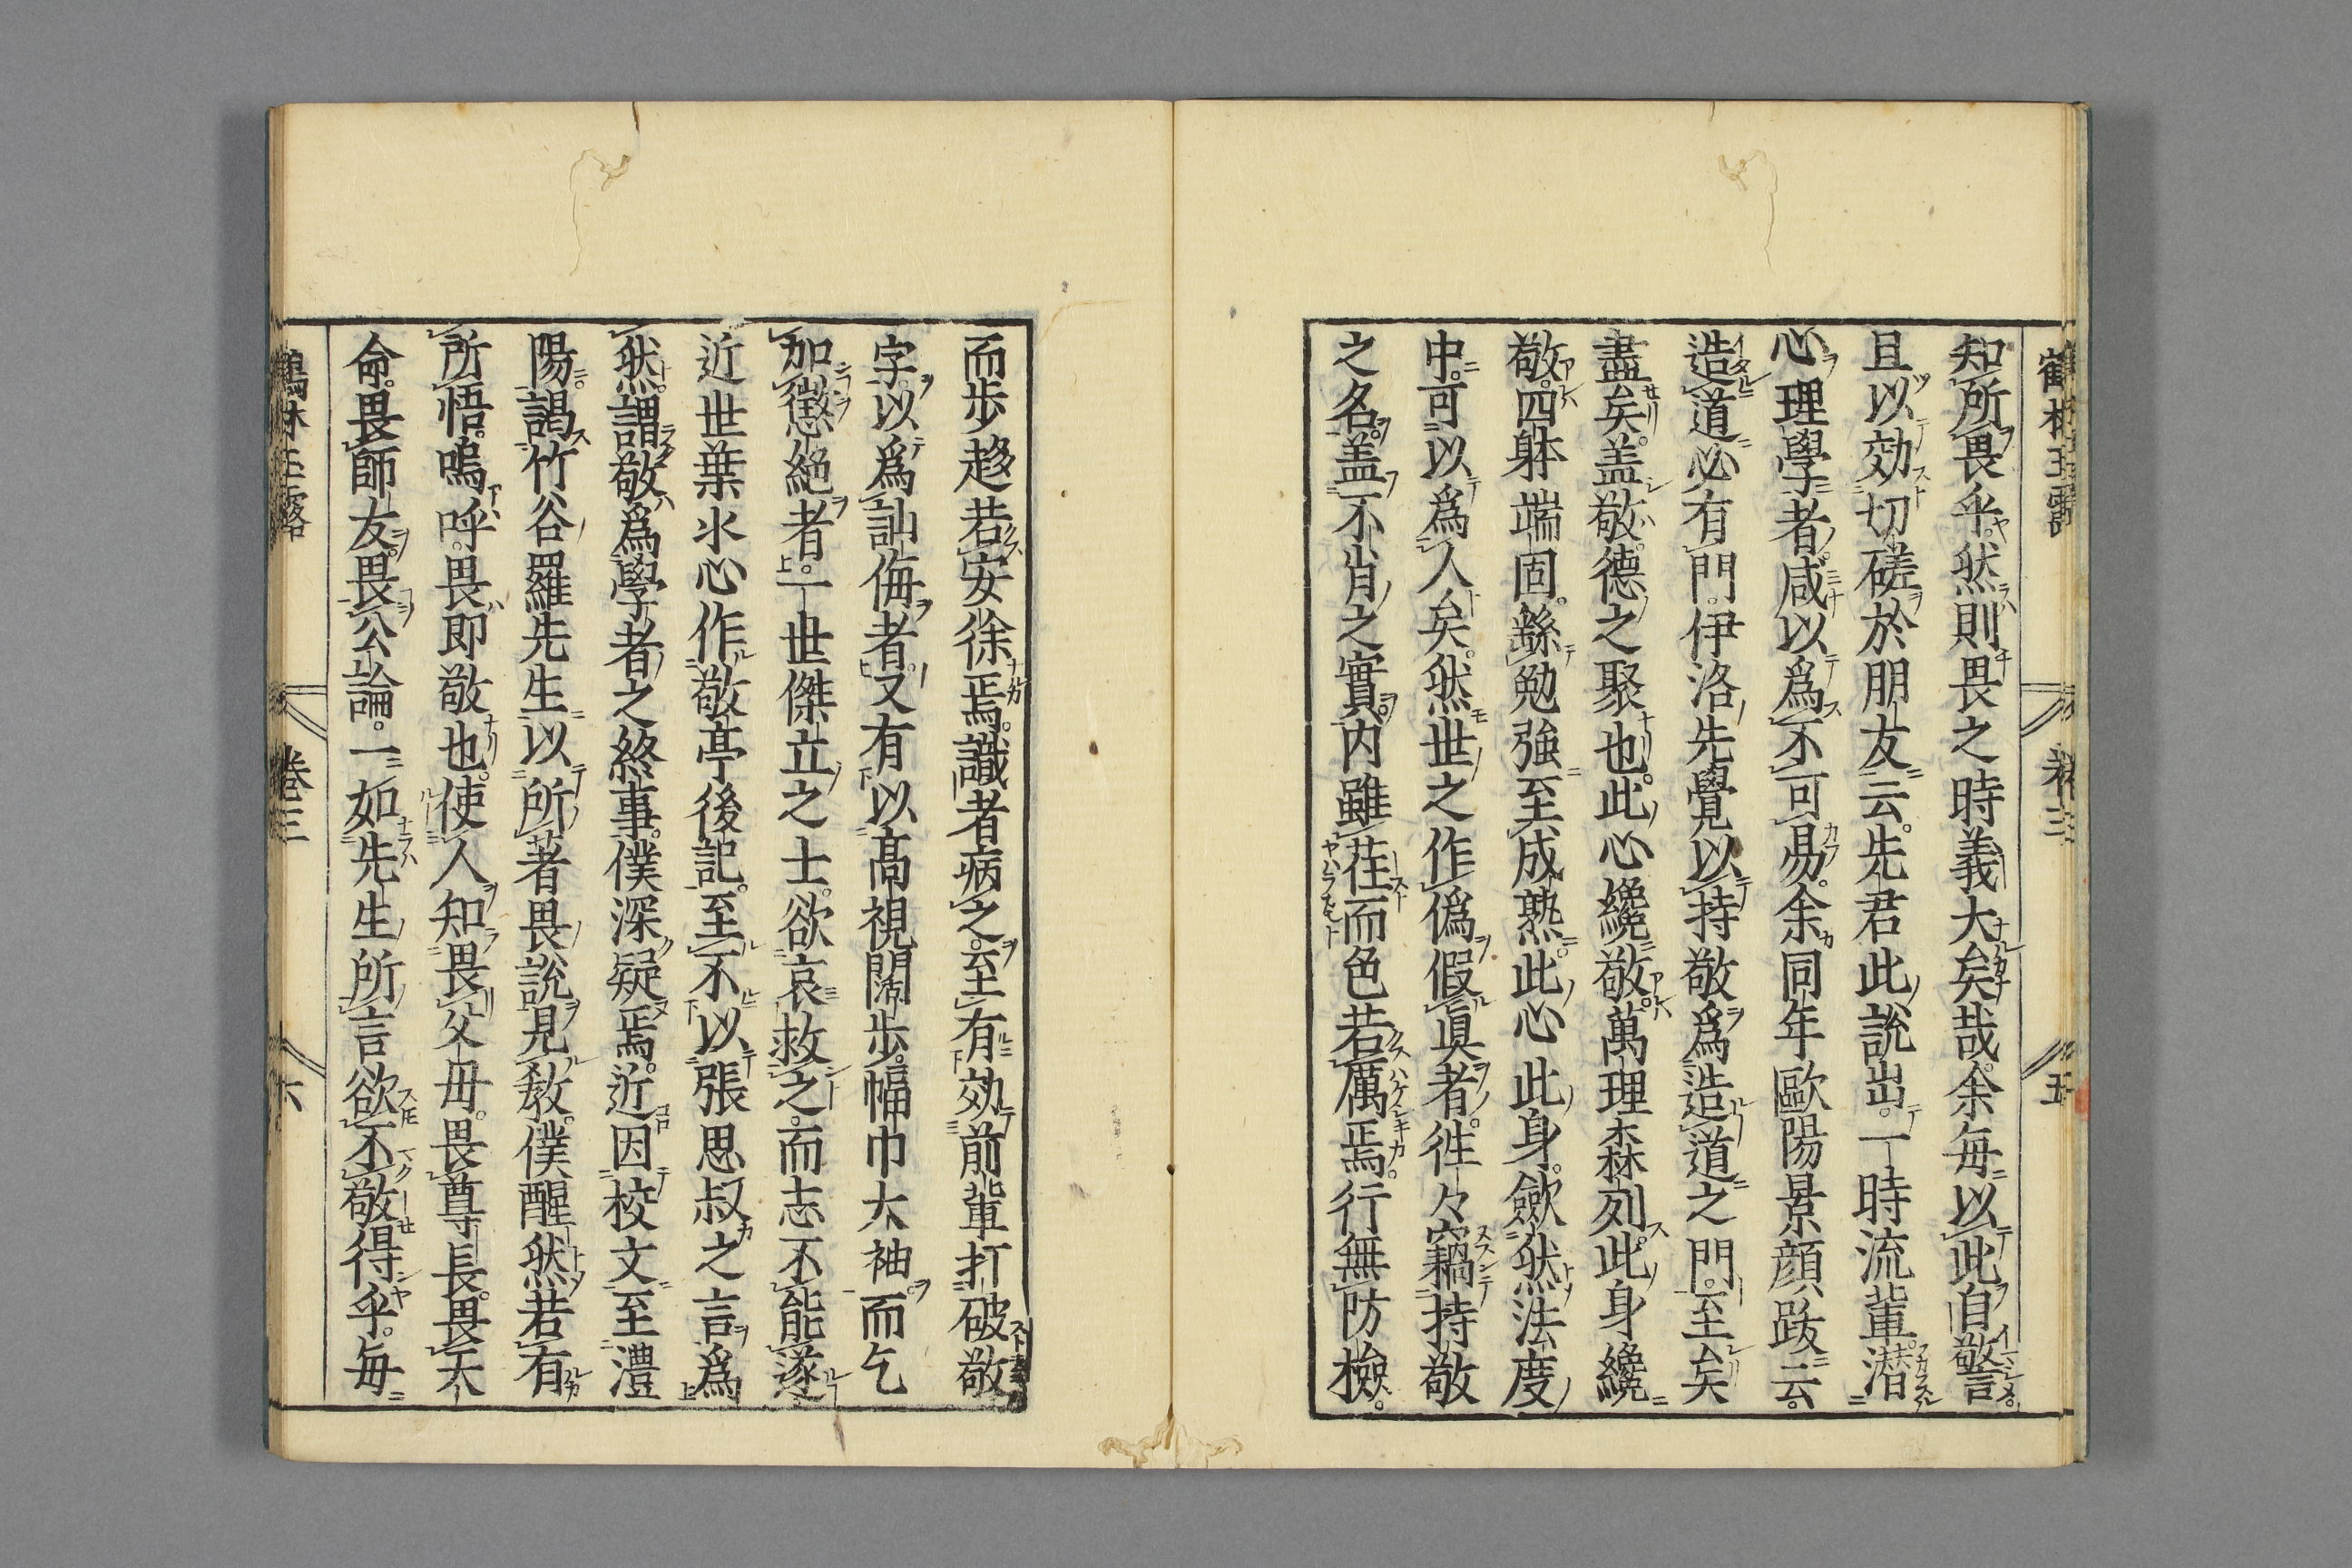 鶴林玉露　卷三　五
知所畏乎。然則畏之時義大矣哉。余毎以此自警。
且以効切磋於朋友云。先君此說出。一時流輩。潜
心理學者。咸以爲不可易。余同年歐陽景顔跋云。
造道必有門。伊洛先覺以持敬爲造道之門。至矣
盡矣。盖敬德之聚也。此心纔敬。萬理森列。此身纔
敬。四躰端固。繇勉強至成熟。此心此身。歛然法度
中。可以爲人矣。然世之作僞假眞者。徃々竊持敬
之名。盖不肖之實。内雖荏而色若厲焉。行無防檢。
而步趍若安徐焉。識者病之。至有効前輩打破敬
字。以爲訕侮者。又有以高視闊步。幅巾大袖。而乞
加懲絶者。一世傑立之士。欲哀救之。而志不能遂
近世葉水心作敬亭後記。至不以張思叔之言爲
然。謂敬爲學者之終事。僕深疑焉。近因校文至澧
陽。謁竹谷羅先生。以所著畏說見教。僕醒然若有
所悟。嗚呼。畏即敬也。使人知畏父毋。畏尊長。畏天
命。畏師友。畏公論。一如先生所言欲不敬得乎。毎
鶴林玉露　卷三　六